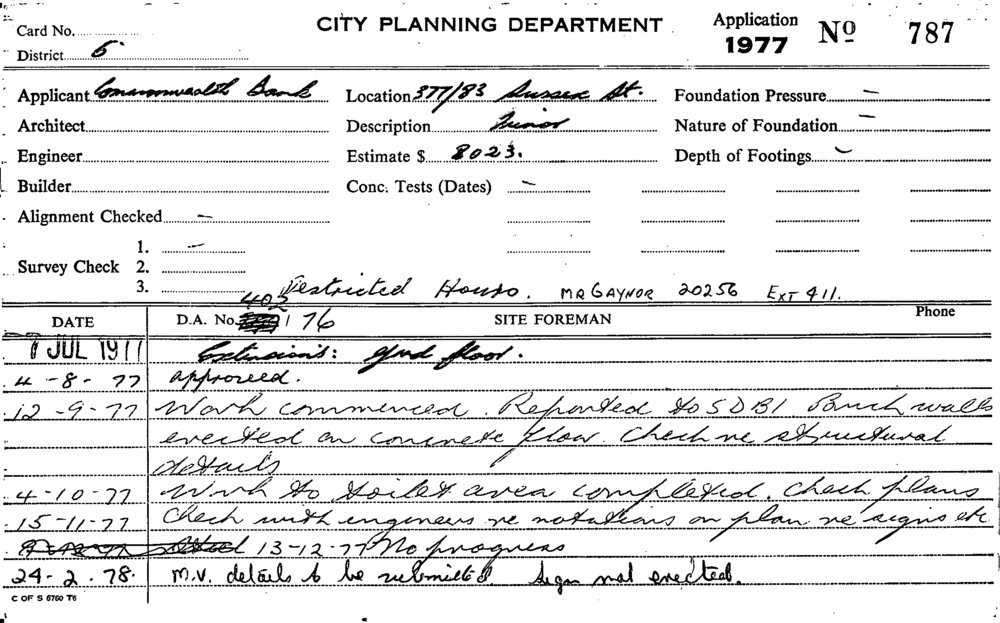 Card No. CITY PLANNING DEPARTMENT Application 1977 Nº 787
District 6
Applicant Commonwealth Bank Location 377/83 Sussex St. Foundation Pressure —
Architect Description Minor Nature of Foundation —
Engineer Estimate $ 8023. Depth of Footings —
Builder Conc. Tests (Dates) —
Alignment Checked —
1. —
Survey Check 2.
3. Restricted Hours. MR GAYNOR 20256 EXT 411.
DATE D.A. No. 405 / 76 SITE FOREMAN Phone
1 JUL 1977 Extension's: grnd floor.
4-8-77 approved.
12-9-77 Work commenced. Reported to SDBI Brick walls
erected on concrete floor. Check re structural
details
4-10-77 Work to toilet area completed. Check plans
15-11-77 Check with engineers re notations on plan re signs etc
13-12-77 No progress
24-2-78. M.V. details to be submitted. Sign not erected.
C OF S 6760 T6